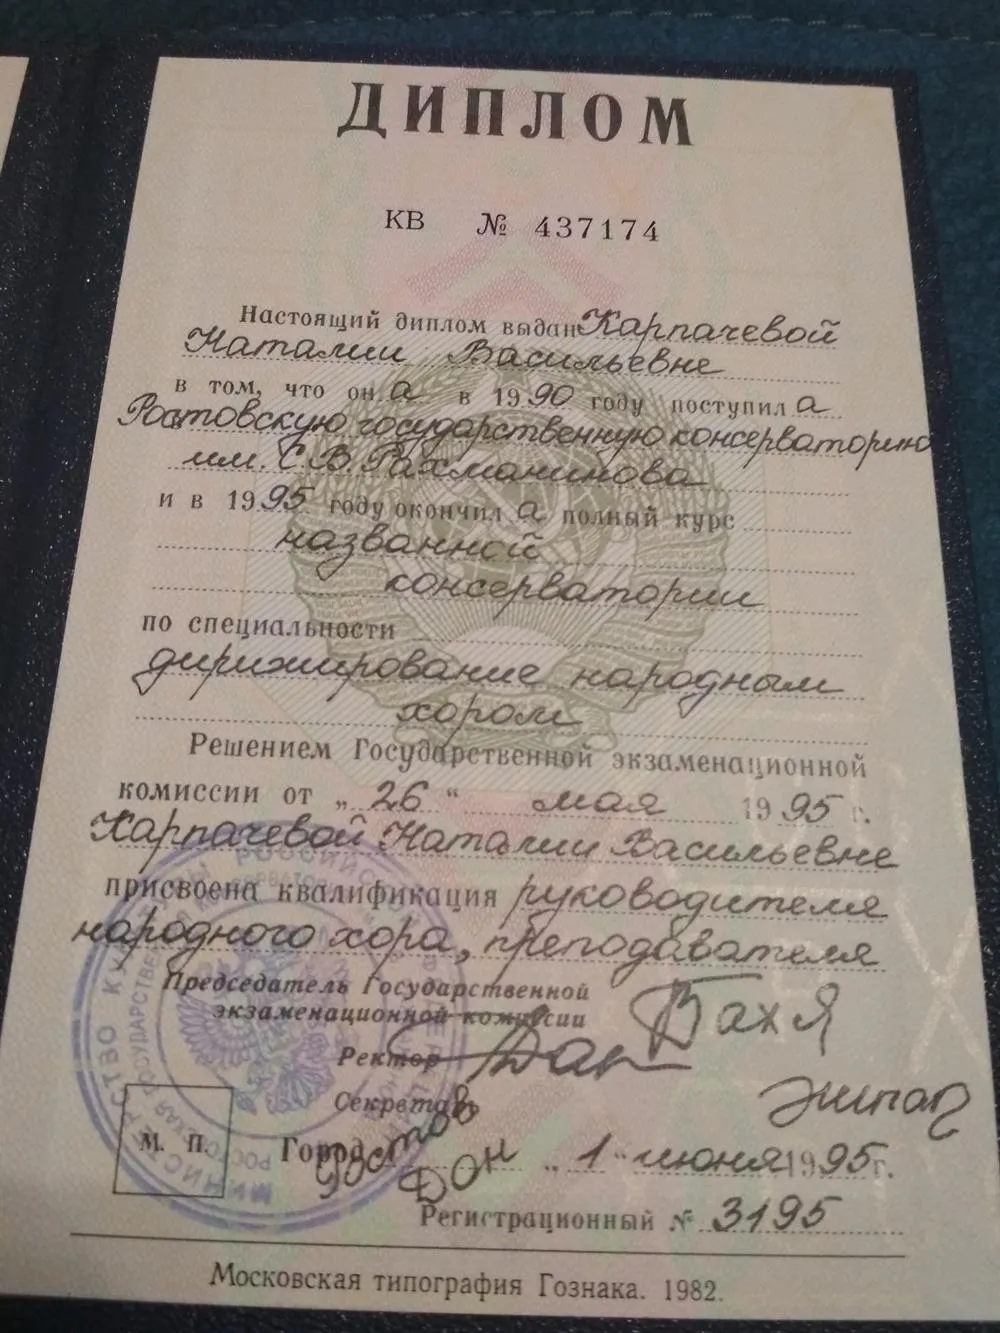 ДИПЛОМ
КВ № 437174
Настоящий диплом выдан Карпачевой
Наталии Васильевне
в том, что он а в 1990 году поступил а
Ростовскую государственную консерваторию
им. С.В. Рахманинова
и в 1995 году окончил а полный курс
названной
консерватории
по специальности
дирижирование народным
хором
Решением Государственной экзаменационной
комиссии от „ 26 “ мая 1995 г.
Карпачевой Наталии Васильевне
присвоена квалификация руководителя
народного хора, преподавателя
Председатель Государственной
экзаменационной комиссии
Ректор
Секретарь
М. П. Город Ростов
Дон „ 1 “ июня 1995 г.
Регистрационный № 3195
Московская типография Гознака. 1982.